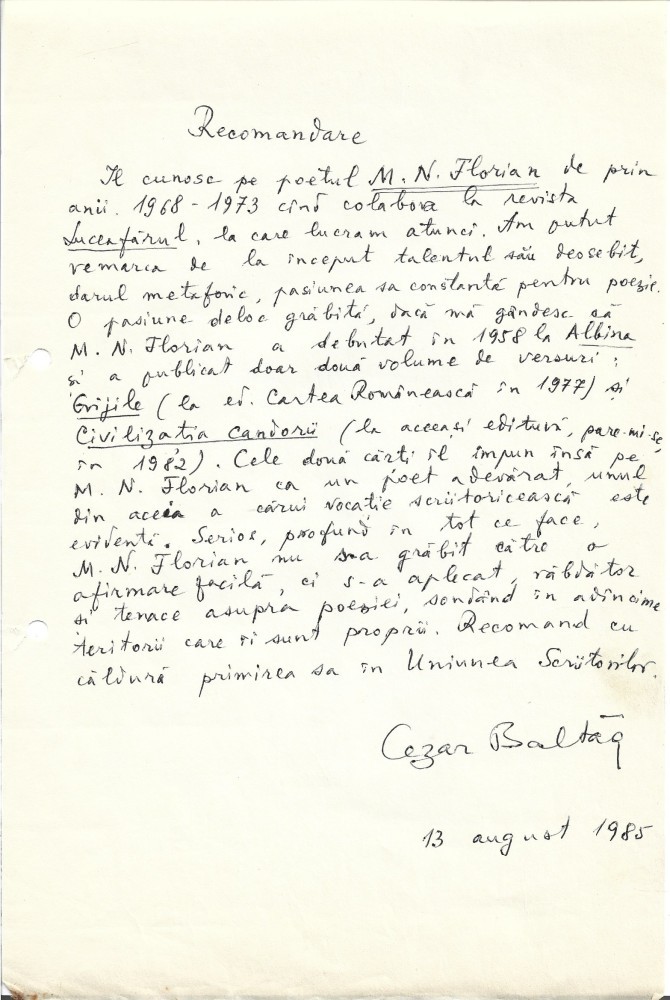 Recomandare
Îl cunosc pe poetul M. N. Florian de prin
anii. 1968 - 1973 cînd colabora la revista
Luceafărul, la care lucram atunci. Am putut
remarca de la început talentul său deosebit,
darul metaforic, pasiunea sa constantă pentru poezie.
O pasiune deloc grăbită, dacă mă gândesc că
M. N. Florian a debutat în 1958 la Albina
și a publicat doar două volume de versuri :
Grijile (la ed. Cartea Românească în 1977) și
Civilizația candorii (la aceeași editură, pare-mi-se,
în 1982). Cele două cărți îl impun însă pe
M. N. Florian ca un poet adevărat, unul
din aceia a cărui vocație scriitoricească este
evidentă. Serios, profund în tot ce face,
M. N. Florian nu s-a grăbit către o
afirmare facilă, ci s-a aplecat, răbdător
și tenace asupra poeziei, sondând în adîncime
teritorii care îi sunt proprii. Recomand cu
căldură primirea sa în Uniunea Scriitorilor.
Cezar Baltag
13 august 1985